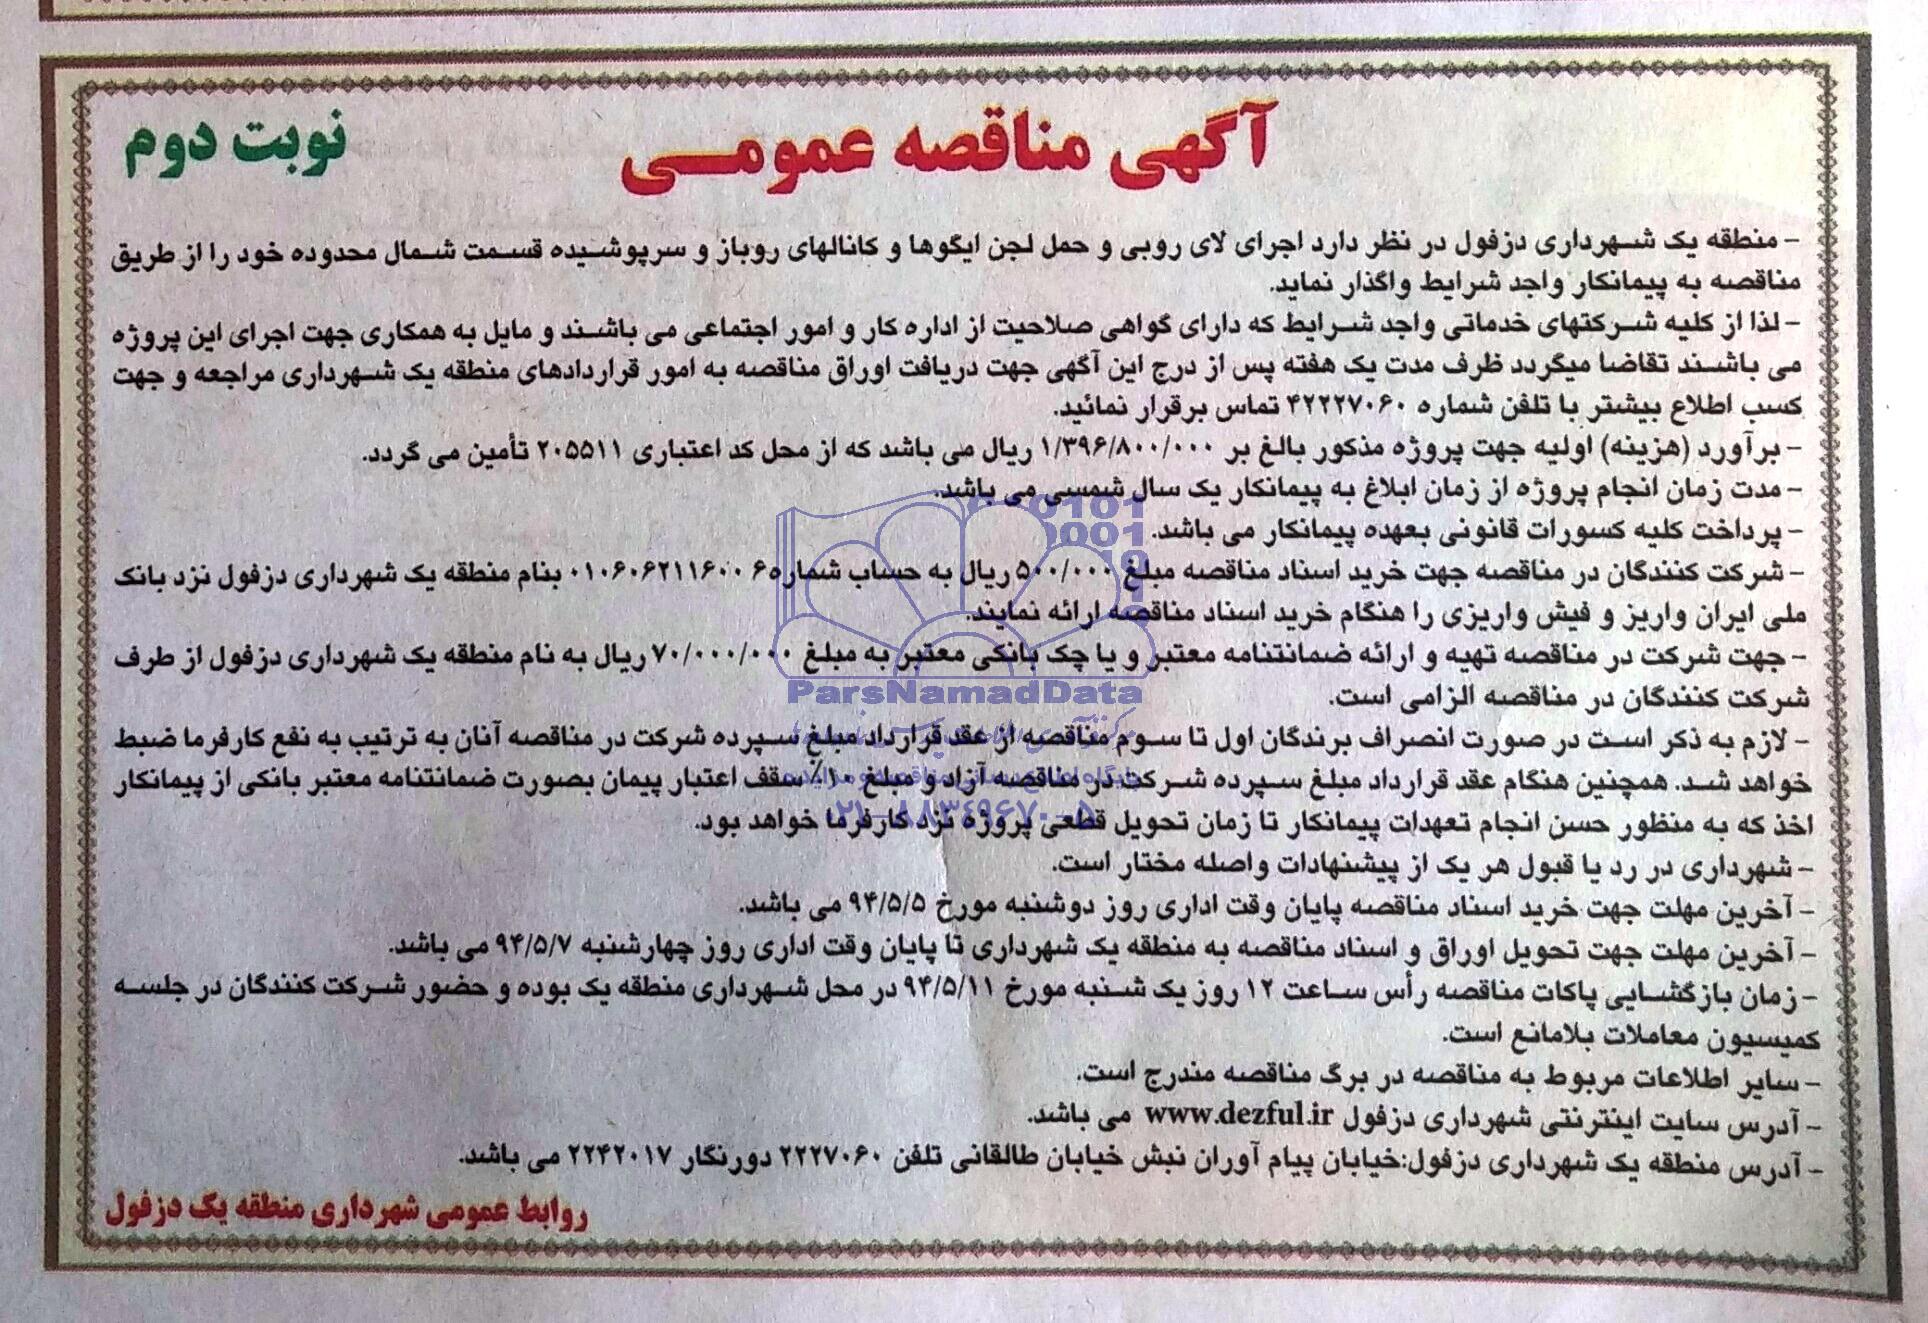 آگهی مناقصه عمومی
نوبت دوم
- منطقه یک شهرداری دزفول در نظر دارد اجرای لای روبی و حمل لجن ایگوها و کانالهای روباز و سرپوشیده قسمت شمال محدوده خود را از طریق
مناقصه به پیمانکار واجد شرایط واگذار نماید.
- لذا از کلیه شرکتهای خدماتی واجد شرایط که دارای گواهی صلاحیت از اداره کار و امور اجتماعی می باشند و مایل به همکاری جهت اجرای این پروژه
می باشند تقاضا میگردد ظرف مدت یک هفته پس از درج این آگهی جهت دریافت اوراق مناقصه به امور قراردادهای منطقه یک شهرداری مراجعه و جهت
کسب اطلاع بیشتر با تلفن شماره ۴۲۲۲۷۰۶۰ تماس برقرار نمائید.
- برآورد (هزینه) اولیه جهت پروژه مذکور بالغ بر ۱/۳۹۶/۸۰۰/۰۰۰ ریال می باشد که از محل کد اعتباری ۲۰۵۵۱۱ تأمین می گردد.
- مدت زمان انجام پروژه از زمان ابلاغ به پیمانکار یک سال شمسی می باشد.
- پرداخت کلیه کسورات قانونی بعهده پیمانکار می باشد.
- شرکت کنندگان در مناقصه جهت خرید اسناد مناقصه مبلغ ۵۰۰/۰۰۰ ریال به حساب شماره ۰۱۰۶۰۶۲۱۱۶۰۰۶ بنام منطقه یک شهرداری دزفول نزد بانک
ملی ایران واریز و فیش واریزی را هنگام خرید اسناد مناقصه ارائه نمایند.
- جهت شرکت در مناقصه تهیه و ارائه ضمانتنامه معتبر و یا چک بانکی معتبر به مبلغ ۷۰/۰۰۰/۰۰۰ ریال به نام منطقه یک شهرداری دزفول از طرف
شرکت کنندگان در مناقصه الزامی است.
- لازم به ذکر است در صورت انصراف برندگان اول تا سوم مناقصه از عقد قرارداد مبلغ سپرده شرکت در مناقصه آنان به ترتیب به نفع کارفرما ضبط
خواهد شد. همچنین هنگام عقد قرارداد مبلغ سپرده شرکت در مناقصه آزاد و مبلغ ۱۰٪ سقف اعتبار پیمان بصورت ضمانتنامه معتبر بانکی از پیمانکار
اخذ که به منظور حسن انجام تعهدات پیمانکار تا زمان تحویل قطعی پروژه نزد کارفرما خواهد بود.
- شهرداری در رد یا قبول هر یک از پیشنهادات واصله مختار است.
- آخرین مهلت جهت خرید اسناد مناقصه پایان وقت اداری روز دوشنبه مورخ ۹۴/۵/۵ می باشد.
- آخرین مهلت جهت تحویل اوراق و اسناد مناقصه به منطقه یک شهرداری تا پایان وقت اداری روز چهارشنبه ۹۴/۵/۷ می باشد.
- زمان بازگشایی پاکات مناقصه رأس ساعت ۱۲ روز یک شنبه مورخ ۹۴/۵/۱۱ در محل شهرداری منطقه یک بوده و حضور شرکت کنندگان در جلسه
کمیسیون معاملات بلامانع است.
- سایر اطلاعات مربوط به مناقصه در برگ مناقصه مندرج است.
- آدرس سایت اینترنتی شهرداری دزفول www.dezful.ir می باشد.
- آدرس منطقه یک شهرداری دزفول:خیابان پیام آوران نبش خیابان طالقانی تلفن ۲۲۲۷۰۶۰ دورنگار ۲۲۴۲۰۱۷ می باشد.
روابط عمومی شهرداری منطقه یک دزفول
ParsNamadData
۰۲۱-۸۸۳۴۹۶۷۰-۵